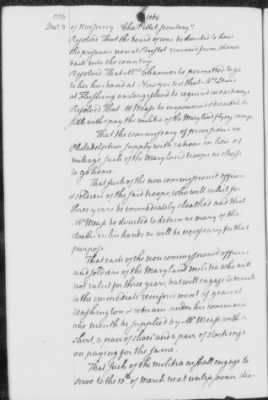 1776
Decr. 3 of New Jersey Chas. Pettit Secretary
Resolved That the board of war be directed to have
the prisoners now at Bristol removed from thence
back into the country.
Resolved That Mrs. Chamier be permitted to go
to her husband at New york & that Mrs.
at Flushing on long island be requested in exchange
Resolved That Mr Mease be empowered & directed to
settle with & pay the militia of the Maryland flying camp.
That the commissary of provisions in
Philadelphia supply with rations in lieu of
mileage such of the Maryland troops as choose
to go home.
That such of the non commissioned officers
& soldiers of the said troops, who will enlist for
three years be immediately cloathed and that
Mr Mease be directed to detain as many of the
cloaths in his hands as will be necessary for that
purpose
That each of the non commissioned officers
and soldiers of the Maryland militia who will
not enlist for three years, but will engage to march
to the immediate reinforcement of general
Washington & remain under his command
one month be supplied by Mr Mease with a
shirt, a pair of shoes and a pair of stockings
on paying for the same.
That such of the militia as shall engage to
serve to the 10th of March next unless sooner dis-